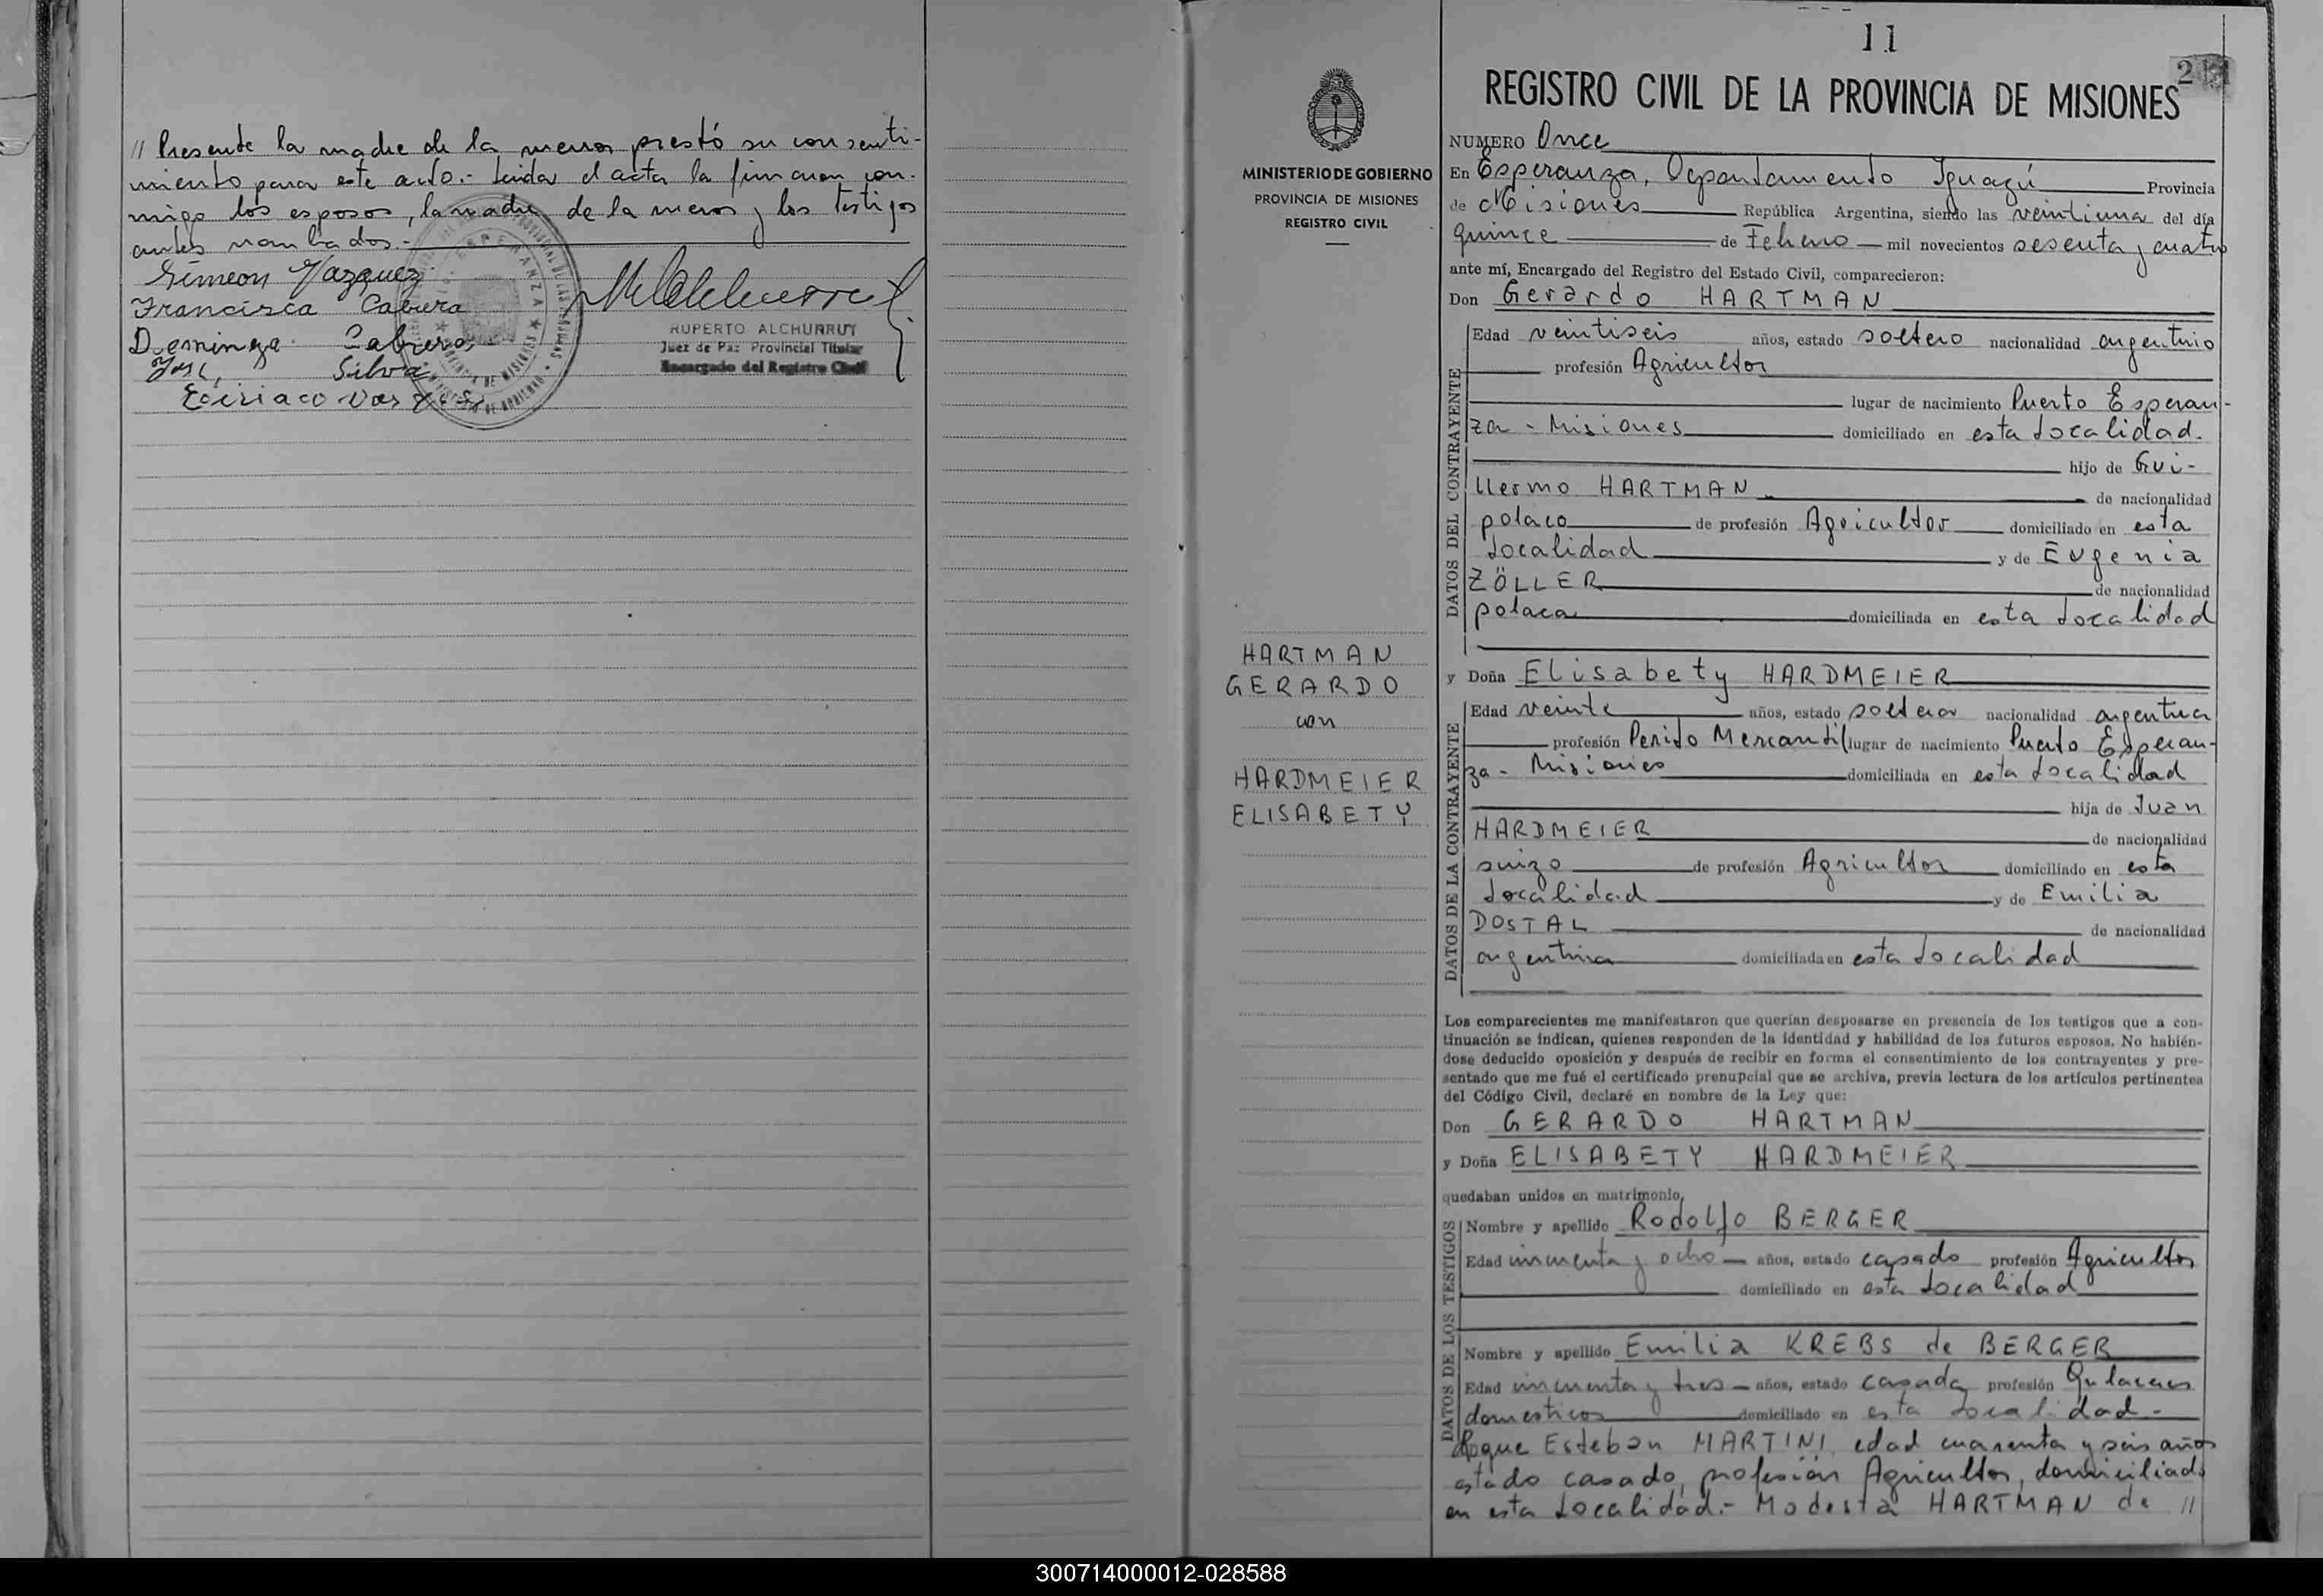 // Presente la madre de la menor prestó su consenti-
miento para este acto.- Leida el acta la firmaron con-
migo los esposos, la madre de la menor y los testigos
antes nombados.-
Simeon Vazquez
Francisca Cabrera
Dominga Cabrera
José Silva
RUPERTO ALCHURRUT
Juez de Paz Provincial Titular
Encargado del Registro Civil
ESPERANZA
11
2
REGISTRO CIVIL DE LA PROVINCIA DE MISIONES
MINISTERIO DE GOBIERNO
PROVINCIA DE MISIONES
REGISTRO CIVIL
HARTMAN
GERARDO
con
HARDMEIER
ELISABETY
NUMERO Once
En Esperanza, Departamento Iguazú Provincia
de Misiones República Argentina, siendo las veintiuna del día
quince de Febrero mil novecientos sesenta y cuatro
ante mí, Encargado del Registro del Estado Civil, comparecieron:
Don Gerardo HARTMAN
DATOS DEL CONTRAYENTE
Edad veintiseis años, estado soltero nacionalidad argentino
profesión Agricultor
lugar de nacimiento Puerto Esperan-
za - Misiones domiciliado en esta Localidad.
hijo de Gui-
llermo HARTMAN de nacionalidad
polaco de profesión Agricultor domiciliado en esta
Localidad y de Eugenia
ZÖLLER de nacionalidad
polaca domiciliada en esta Localidad
y Doña Elisabety HARDMEIER
DATOS DE LA CONTRAYENTE
Edad veinte años, estado soltera nacionalidad argentina
profesión Perito Mercantil lugar de nacimiento Puerto Esperan-
za - Misiones domiciliada en esta Localidad
hija de Juan
HARDMEIER de nacionalidad
suizo de profesión Agricultor domiciliado en esta
Localidad y de Emilia
DOSTAL de nacionalidad
argentina domiciliada en esta Localidad
Los comparecientes me manifestaron que querían desposarse en presencia de los testigos que a con-
tinuación se indican, quienes responden de la identidad y habilidad de los futuros esposos. No habién-
dose deducido oposición y después de recibir en forma el consentimiento de los contrayentes y pre-
sentado que me fué el certificado prenupcial que se archiva, previa lectura de los artículos pertinentes
del Código Civil, declaré en nombre de la Ley que:
Don GERARDO HARTMAN
y Doña ELISABETY HARDMEIER
quedaban unidos en matrimonio.
DATOS DE LOS TESTIGOS
Nombre y apellido Rodolfo BERGER
Edad cincuenta y ocho años, estado casado profesión Agricultor
domiciliado en esta Localidad
Nombre y apellido Emilia KREBS de BERGER
Edad cincuenta y tres años, estado casada profesión Quehaceres
domesticos domiciliado en esta Localidad.-
Roque Esteban MARTINI, edad cuarenta y seis años
estado casado, profesión Agricultor, domiciliado
en esta Localidad.- Modesta HARTMAN de //
300714000012-028588